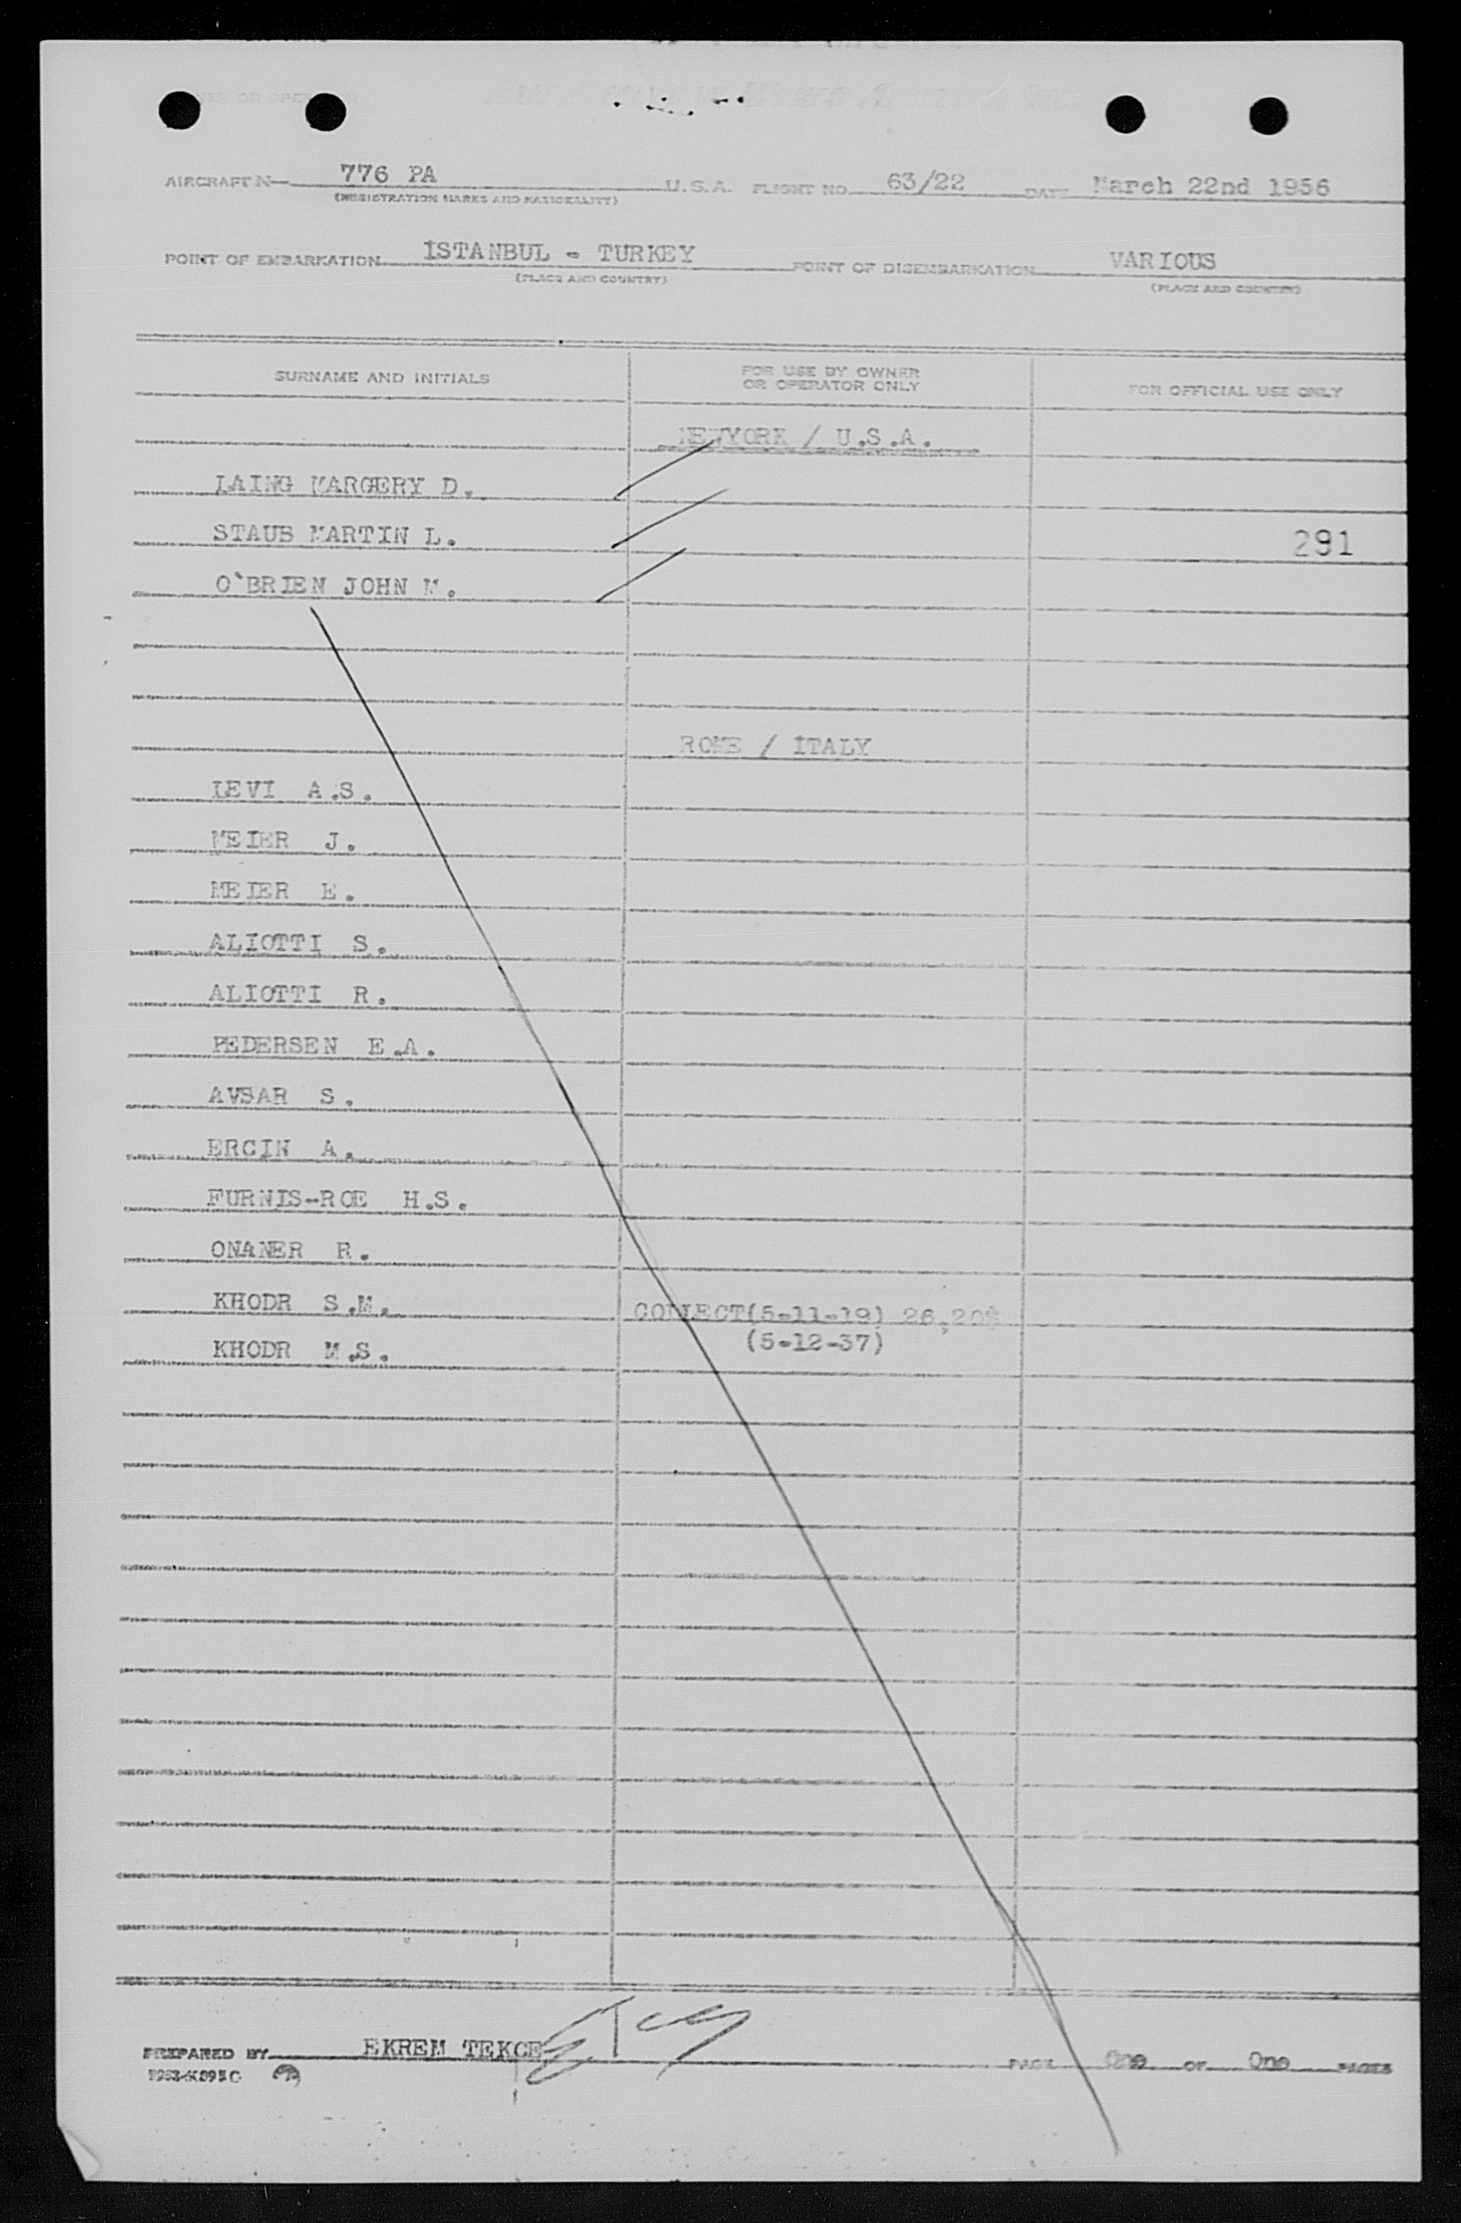 AIRCRAFT N 776 PA U.S.A. FLIGHT NO. 63/22 DATE March 22nd 1956
(REGISTRATION MARKS AND NATIONALITY)
POINT OF EMBARKATION İSTANBUL - TURKEY POINT OF DISEMBARKATION VARIOUS
(PLACE AND COUNTRY) (PLACE AND COUNTRY)
SURNAME AND INITIALS FOR USE BY OWNER OR OPERATOR ONLY FOR OFFICIAL USE ONLY
NEWYORK / U.S.A.
LAING MARGERY D.
STAUB MARTIN L. 291
O`BRIEN JOHN M.
ROME / İTALY
LEVI A.S.
MEIER J.
MEIER E.
ALİOTTI S.
ALIOTTI R.
PEDERSEN E.A.
AVSAR S.
ERCIN A.
FURNIS-ROE H.S.
ONANER R.
KHODR S.M. COLLECT(5-11-19) 26,20$
KHODR M.S. (5-12-37)
PREPARED BY EKREM TEKCE PAGE One OF One PAGES